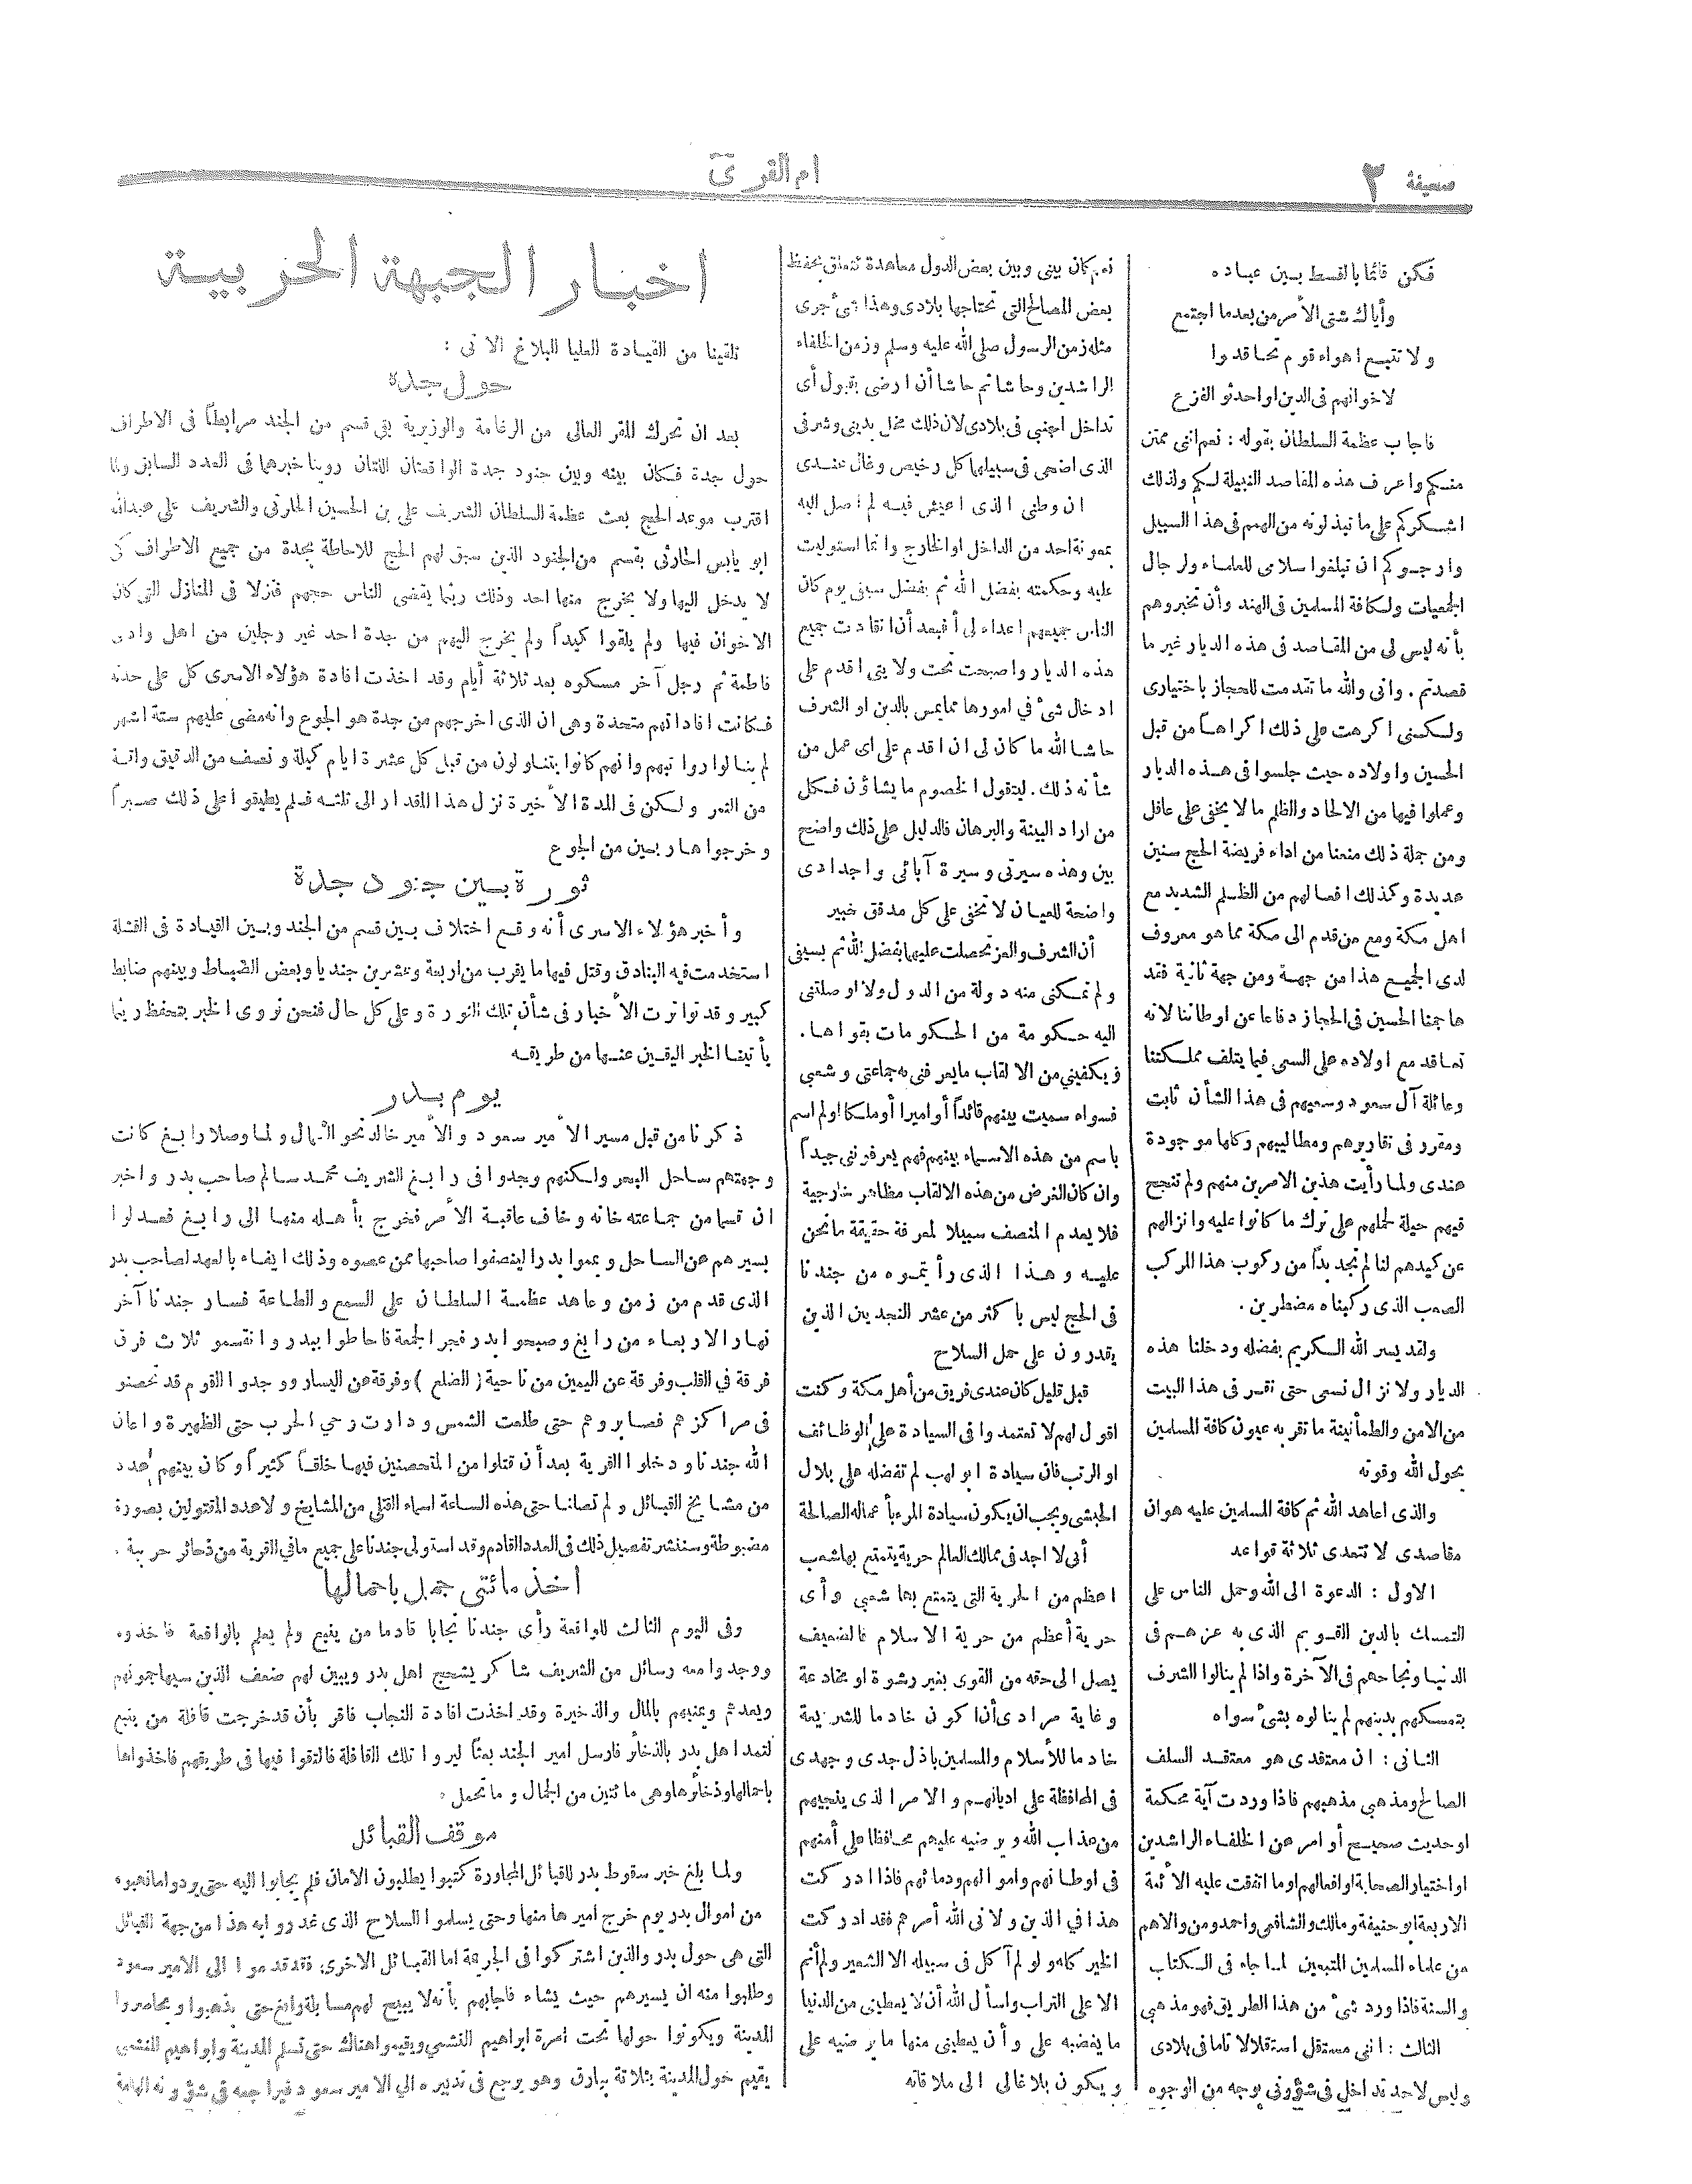 صحيفة ٢
ام القرى
فكن قائما بالقسط بين عباده
وأياك شتى الأمر من بعد ما اجتمع
ولا تتبع اهواء قوم تحاقدوا
لاخوانهم فى الدين او احدثو الفزع
فاجاب عظمة السلطان بقوله : نعم انني ممتن
منكم واعرف هذه المقاصد النبيلة لكم ولذلك
اشكركم على ما تبذلونه من الهمم فى هذا السبيل
وارجوكم ان تبلغوا سلامى للعلماء ولرجال
الجمعيات ولكافة المسلمين فى الهند وأن تخبروهم
بأنه ليس لى من المقاصد فى هذه الديار غير ما
قصدتم . وانى والله ما تقدمت للحجاز باختيارى
ولكننى اكرهت على ذلك اكراهاً من قبل
الحسين واولاده حيث جلسوا فى هذه الديار
وعملوا فيها من الالحاد والظلم ما لا يخفى على عاقل
ومن جملة ذلك منعنا من اداء فريضة الحج سنين
عديدة وكذلك افعالهم من الظلم الشديد مع
اهل مكة ومع من قدم الى مكة مما هو معروف
لدى الجميع هذا من جهة ومن جهة ثانية فقد
هاجمنا الحسين فى الحجاز دفاعا عن اوطاننا لانه
تعاقد مع اولاده على السعى فيما يتلف مملكتنا
وعائلة آل سعود وسعيهم فى هذا الشأن ثابت
ومقرر فى تقاريرهم ومطاليبهم وكلها موجودة
عندى ولما رأيت هذين الامرين منهم ولم تنجح
فيهم حيلة لحملهم على ترك ما كانوا عليه وانزالهم
عن كيدهم لنا لم نجد بداً من ركوب هذا المركب
الصعب الذى ركبناه مضطرين .
ولقد يسر الله الكريم بفضله ودخلنا هذه
الديار ولا نزال نسعى حتى نقر فى هذا البيت
من الامن والطمأنينة ما تقر به عيون كافة المسلمين
بحول الله وقوته
والذى اعاهد الله ثم كافة المسلمين عليه هو ان
مقاصدى لا تتعدى ثلاثة قواعد
الاول : الدعوة الى الله وحمل الناس على
التمسك بالدين القويم الذى به عزهم فى
الدنيا ونجاحهم فى الآخرة واذا لم ينالوا الشرف
بتمسكهم بدينهم لم ينالوه بشىء سواه
الثانى : ان معتقدى هو معتقد السلف
الصالح ومذهبي مذهبهم فاذا وردت آية محكمة
او حديث صحيح أو امر عن الخلفاء الراشدين
او اختيار الصحابة او افعالهم او ما اتفقت عليه الأئمة
الاربعة ابو حنيفة ومالك والشافعى واحمد ومن والاهم
من علماء المسلمين المتبعين لما جاء فى الكتاب
والسنة فاذا ورد شىء من هذا الطريق فهو مذهبي
الثالث : اننى مستقل استقلالا تاما فى بلادى
وليس لاحد تداخل فى شؤونى بوجه من الوجوه
نعم كان بينى وبين بعض الدول معاهدة تتعلق بحفظ
بعض المصالح التى تحتاجها بلادى وهذا شىء جرى
مثله زمن الرسول صلى الله عليه وسلم وزمن الخلفاء
الراشدين وحاشا ثم حاشا أن ارضى بقبول أى
تداخل اجنبى فى بلادى لان ذلك مخل بدينى وشرفى
الذى اضحى فى سبيلها كل رخيص وغال عندى
ان وطنى الذى اعيش فيه لم اصل اليه
بمعونة احد من الداخل او الخارج وانما استوليت
عليه وحكمته بفضل الله ثم بفضل سيفى يوم كان
الناس جميعهم اعداء لى أفبعد أن انقادت جميع
هذه الديار واصبحت تحت ولايتى اقدم على
ادخال شىء فى امورها مما يمس بالدين او الشرف
حاشا الله ما كان لى ان اقدم على اى عمل من
شأنه ذلك . ليتقول الخصوم ما يشاؤن فكل
من اراد البينة والبرهان فالدليل على ذلك واضح
بين وهذه سيرتى وسيرة آبائى واجدادى
واضحة للعيان لا تخفى على كل مدقق خبير
أن الشرف والعز تحصلت عليها بفضل الله ثم بسيفى
ولم تمكنى منه دولة من الدول ولا اوصلتنى
اليه حكومة من الحكومات بقواها .
ويكفيني من الالقاب ما يعرفنى به جماعتى وشعبى
فسواه سميت بينهم قائداً أو اميرا أو ملكا او لم اسم
باسم من هذه الاسماء بينهم فهم يعرفونى جيداً
وان كان الغرض من هذه الالقاب مظاهر خارجية
فلا يعدم المنصف سبيلا لمعرفة حقيقة ما نحن
عليه وهذا الذى رأيتموه من جندنا
فى الحج ليس باكثر من عشر النجديين الذين
يقدرون على حمل السلاح
قبل قليل كان عندى فريق من أهل مكة وكنت
اقول لهم لا تعتمدوا فى السيادة على الوظائف
او الرتب فان سيادة ابو لهب لم تفضله على بلال
الحبشى ويجب ان يكون سيادة المرء بأعماله الصالحة
أنى لا اجد فى ممالك العالم حرية يتمتع بها شعب
اعظم من الحرية التى يتمتع بها شعبى وأى
حرية أعظم من حرية الاسلام فالضعيف
يصل الى حقه من القوى بغير رشوة او مخادعة
وغاية مرادى أن اكون خادما للشريعة
خادما للأسلام والمسلمين باذل جدى وجهدى
فى المحافظة على اديانهم والامر الذى ينجيهم
من عذاب الله ويرضيه عليهم محافظا على أمنهم
فى اوطانهم واموالهم ودمائهم فاذا ادركت
هذا في الذين ولانى الله أمرهم فقد ادركت
الخير كله ولو لم آكل فى سبيله الا الشعير ولم أنم
الا على التراب واسأل الله أن لا يعطينى من الدنيا
ما يغضبه على وأن يعطينى منها ما يرضيه على
ويكون بلاغا لى الى ملاقاته
اخبار الجبهة الحربية
تلقينا من القيادة العليا البلاغ الاتى :
حول جدة
بعد ان تحرك المقر العالى من الرغامة والوزيرية بقى قسم من الجند مرابطاً فى الاطراف
حول جدة فكان بينه وبين جنود جدة الواقعتان اللتان روينا خبرهما فى العدد السابق ولما
اقترب موعد الحج بعث عظمة السلطان الشريف على بن الحسين الحارثى والشريف على عبدالله
ابو يابس الحارثى بقسم من الجنود الذين سبق لهم الحج للاحاطة بجدة من جميع الاطراف كى
لا يدخل اليها ولا يخرج منها احد وذلك ريثما يقضى الناس حجهم فنزلا فى المنازل التى كان
الاخوان فيها ولم يلقوا كيداً ولم يخرج اليهم من جدة احد غير رجلين من اهل وادى
فاطمة ثم رجل آخر مسكوه بعد ثلاثة أيام وقد اخذت افادة هؤلاء الاسرى كل على حدة
فكانت افاداتهم متحدة وهى ان الذى اخرجهم من جدة هو الجوع وانه مضى عليهم ستة اشهر
لم ينالوا رواتبهم وانهم كانوا يتناولون من قبل كل عشرة ايام كيلة ونصف من الدقيق واقة
من التمر ولكن فى المدة الأخيرة نزل هذا المقدار الى ثلثه فلم يطيقوا على ذلك صبراً
وخرجوا هاربين من الجوع
ثورة بين جنود جدة
وأخبر هؤلاء الاسرى أنه وقع اختلاف بين قسم من الجند وبين القيادة فى القشلة
استخدمت فيه البنادق وقتل فيها ما يقرب من اربعة وعشرين جنديا وبعض الضباط وبينهم ضابط
كبير وقد تواترت الأخبار فى شأن تلك الثورة وعلى كل حال فنحن نروى الخبر بتحفظ ريثما
يأتينا الخبر اليقين عنها من طريقه
يوم بدر
ذكرنا من قبل مسير الأمير سعود والأمير خالد نحو الشمال ولما وصلا رابغ كانت
وجهتهم ساحل البحر ولكنهم وجدوا فى رابغ الشريف محمد سالم صاحب بدر واخبر
ان قسما من جماعته خانه وخاف عاقبة الأمر فخرج بأهله منها الى رابغ فعدلوا
بسيرهم عن الساحل ويمموا بدرا لينصفوا صاحبها ممن عصوه وذلك ايفاء بالعهد لصاحب بدر
الذى قدم من زمن وعاهد عظمة السلطان على السمع والطاعة فسار جندنا آخر
نهار الاربعاء من رابغ وصبحوا بدر فجر الجمعة فاحاطوا ببدر وانقسمو ثلاث فرق
فرقة في القلب وفرقة عن اليمين من ناحية ( الضلع ) وفرقة عن اليسار ووجدوا القوم قد تحصنو
فى مراكزهم فصابروهم حتى طلعت الشمس ودارت رحي الحرب حتى الظهيرة واعان
الله جندنا ودخلوا القرية بعد أن قتلوا من المتحصنين فيها خلقاً كثيراً وكان بينهم عدد
من مشايخ القبائل ولم تصلنا حتى هذه الساعة اسماء القتلى من المشايخ ولا عدد المقتولين بصورة
مضبوطة وسننشر تفصيل ذلك فى العدد القادم وقد استولى جندنا على جميع ما في القرية من ذخائر حربية .
اخذ مائتى جمل باحمالها
وفى اليوم الثالث للواقعة رأى جندنا نجابا قادما من ينبع ولم يعلم بالواقعة فاخذوه
ووجدوا معه رسائل من الشريف شاكر يشجع اهل بدر ويبين لهم ضعف الذين سيهاجمونهم
ويعدهم ويمنيهم بالمال والذخيرة وقد اخذت افادة النجاب فاقر بأن قد خرجت قافلة من ينبع
لتمد اهل بدر بالذخائر فارسل امير الجند بعثا ليروا تلك القافلة فالتقوا فيها فى طريقهم فاخذواها
باحمالها وذخائرها وهى مائتين من الجمال وما تحمل .
موقف القبائل
ولما بلغ خبر سقوط بدر للقبائل المجاورة كتبوا يطلبون الامان فلم يجابوا اليه حتى يردوا ما نهبوه
من اموال بدر يوم خرج اميرها منها وحتى يسلموا السلاح الذى غدروا به هذا من جهة القبائل
التى هى حول بدر والذين اشتركوا فى الجريمة اما القبائل الاخرى فقد قدموا الى الامير سعود
وطلبوا منه ان يسيرهم حيث يشاء فاجابهم بأنه لا يبيح لهم مسابلة ولنغ حتى يذهبوا ويحاصروا
المدينة ويكونوا حولها تحت امرة ابراهيم النشمى ويقيموا هناك حتى تسلم المدينة وابراهيم النشمى
يقيم حول المدينة بثلاثة بيارق وهو يرجع فى تدبيره الي الامير سعود فيراجعه فى شؤونه الهامة